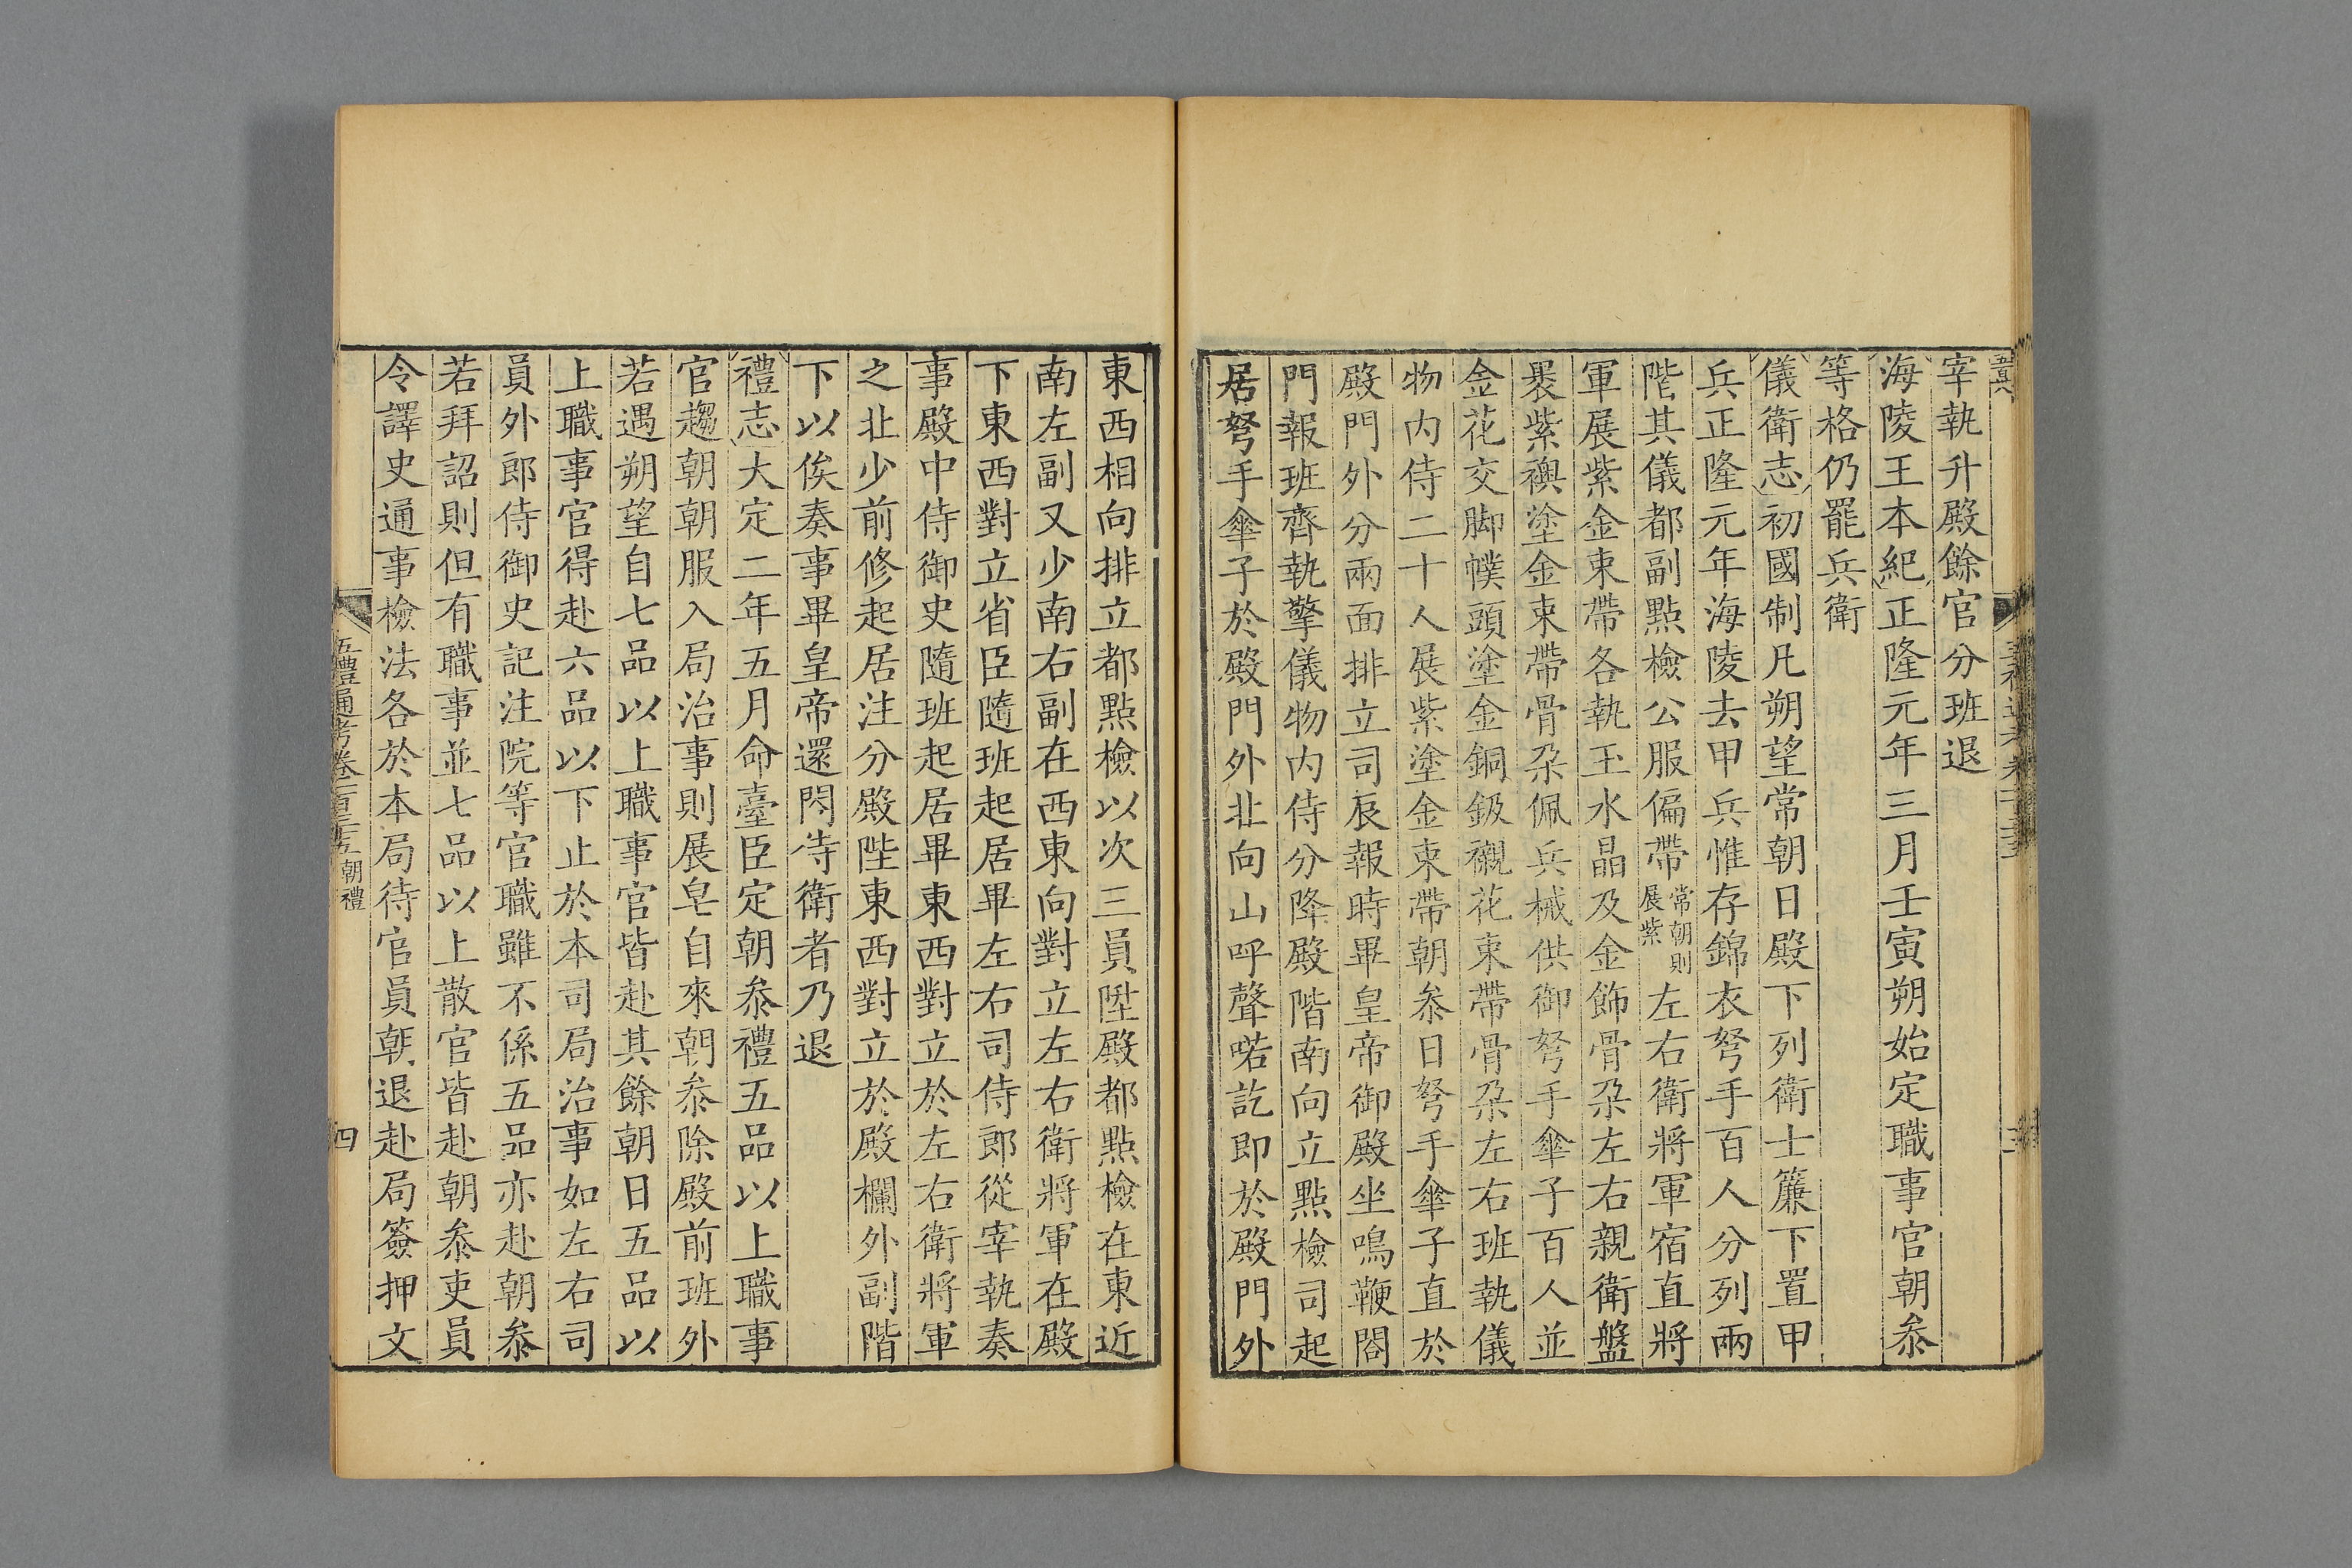 宰執升殿餘官分班退
海陵王本紀正隆元年三月壬寅朔始定職事官朝叅
等格仍罷兵衛
儀衛志初國制凡朔望常朝日殿下列衛士簾下置甲
兵正隆元年海陵去甲兵惟存錦衣弩手百人分列兩
階其儀都副點檢公服偏帶常朝則展紫左右衛將軍宿直將
軍展紫金束帶各執玉水晶及金飾骨朶左右親衛盤
褁紫襖塗金束帶骨朶佩兵械供御弩手傘子百人並
金花交脚幞頭塗金銅鈒襯花束帶骨朶左右班執儀
物内侍二十人展紫塗金束帶朝叅日弩手傘子直於
殿門外分兩面排立司辰報時畢皇帝御殿坐鳴鞭閤
門報班齊執擎儀物内侍分降殿階南向立點檢司起
居弩手傘子於殿門外北向山呼聲喏訖即於殿門外
東西相向排立都點檢以次三員陞殿都點檢在東近
南左副又少南右副在西東向對立左右衛將軍在殿
下東西對立省臣隨班起居畢左右司侍郎從宰執奏
事殿中侍御史隨班起居畢東西對立於左右衛將軍
之北少前修起居注分殿陛東西對立於殿欄外副階
下以俟奏事畢皇帝還閤侍衛者乃退
禮志大定二年五月命臺臣定朝叅禮五品以上職事
官趨朝朝服入局治事則展皂自來朝叅除殿前班外
若遇朔望自七品以上職事官皆赴其餘朝日五品以
上職事官得赴六品以下止於本司局治事如左右司
員外郎侍御史記注院等官職雖不係五品亦赴朝叅
若拜詔則但有職事並七品以上散官皆赴朝叅吏員
令譯史通事檢法各於本局待官員朝退赴局簽押文
五禮通考卷一百三十五 朝禮 四